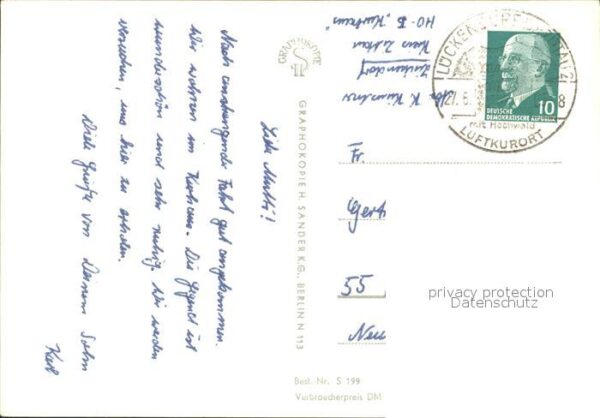 Liebe Mutti!
Nach anstrengender Fahrt gut angekommen.
Wir wohnen im Kurhaus. Die Gegend ist
wunderschön und sehr ruhig. Wir werden
versuchen, uns hier zu erholen.
Viele Grüße von Deinem Sohn
Karl
GRAPHOKOPIE
GRAPHOKOPIE H. SANDER K.G., BERLIN N 113
Best. Nr. S 199
Verbraucherpreis DM
K.
Lückendorf
Kreis Zittau
HO-G. "Kurhaus"
27. 6.
8
mit Hochwald
LUFTKURORT
10
DEUTSCHE
DEMOKRATISCHE REPUBLIK
Fr.
Gert
55
Neu
privacy protection
Datenschutz